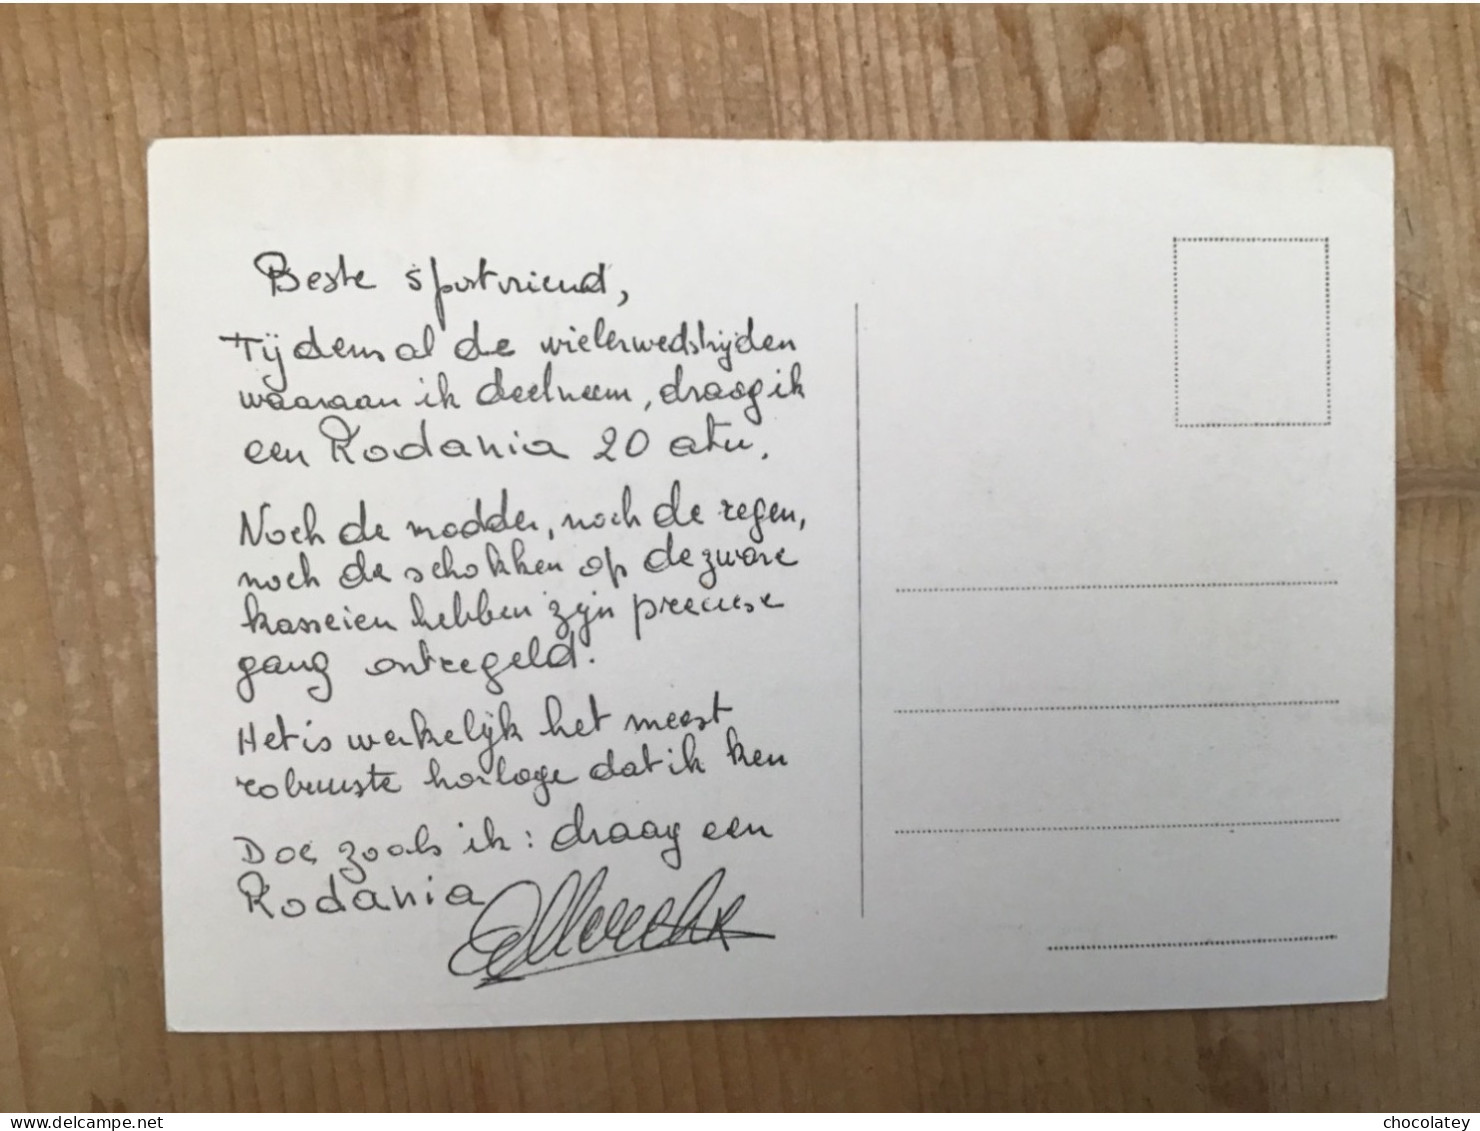 Beste sportvriend,
Tijdens al de wielerwedstrijden
waaraan ik deelneem, draag ik
een Rodania 20 atu.
Noch de modder, noch de regen,
noch de schokken op de zware
kasseien hebben zijn preciese
gang ontregeld.
Het is werkelijk het meest
robuuste horloge dat ik ken
Doe zoals ik: draag een
Rodania
EdMerckx
chocolatey